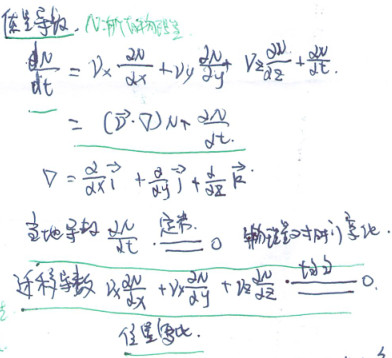 随体导数. N为个体物理量
dN/dt = Vx ∂N/∂x + Vy ∂N/∂y + Vz ∂N/∂z + ∂N/∂t.
= (V⃗·∇)N + ∂N/∂t.
∇ = ∂/∂x i⃗ + ∂/∂y j⃗ + ∂/∂z k⃗.
当地导数 ∂N/∂t . 定常 0 物理量对时间变化.
迁移导数 Vx ∂N/∂x + Vy ∂N/∂y + Vz ∂N/∂z . 均匀 0.
位置变化.